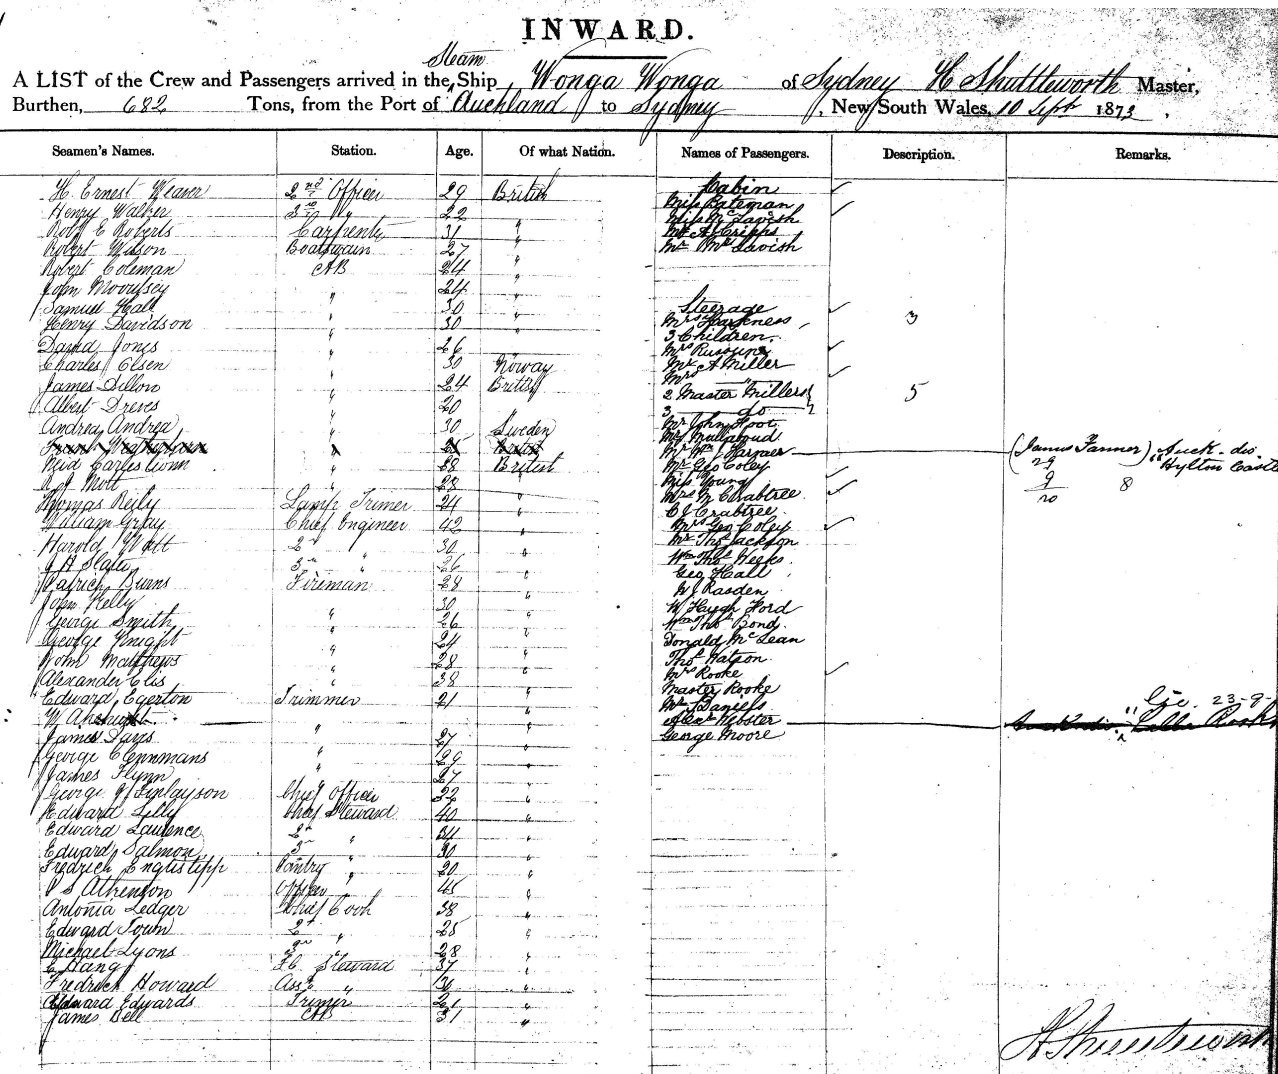 INWARD.
Steam
A LIST of the Crew and Passengers arrived in the Ship Wonga Wonga of Sydney H Shuttleworth Master,
Burthen, 682 Tons, from the Port of Auckland to Sydney, New South Wales, 10 Sept 1873.
Seamen's Names. Station. Age. Of what Nation. Names of Passengers. Description. Remarks.
H. Ernest Weaver 2nd Officer 29 British Cabin
Henry Walker 3rd " 22 Miss Bateman
Robt E Roberts Carpenter 31 " Miss McTavish
Robert Wilson Boatswain 27 " Mr A Cripps
Robert Coleman AB 24 " Mr McTavish
John 24 "
Samuel Hall " 30 " Steerage
Henry Davidson " 30 " Mrs Harkness 3
David Jones " 26 3 Children
Charles Olsen " 30 Norway Mrs
James Dillon " 24 British Mr A Miller
Albert Dreves " 20 Mrs "
Andrea Andrea " 30 Sweden 2 Master Millers 5
3 do
British Mr John Foot
28 British Mr
R J Mott " 28 " Mr Wm Farmer (James Fanner) "Auck. dis.
Thomas Reily Lamp Trimer 24 " Mr Geo Coley 29 Hylton Castle
William Gray Chief Engineer 42 " Miss Young 9 8
Harold Watt 2d " 30 " Mrs N Crabtree 20
J H Slater 3rd " 26 " C J Crabtree
Patrick Burns Fireman 28 " Mrs Geo Coley
John Kelly 30 " Mr Thos Jackson
George Smith " 26 " Wm Thos Weeks
George Knight " 24 " Geo Hall
John Matthews " 28 " W J Rasden
Alexander Elis " 38 " W Haugh Ford
Edward Egerton Trimmer 21 " Wm Thos Bond
W. " Donald McLean
James Davis " 27 " Thos Watson
George Clemmans " 29 " Mrs Rooke
James Flynn " 27 " Master Rooke
George J Finlayson Chief Officer 32 " Mr J Daniels 23-9-
Edward Lilly Chief Steward 40 " Alexr Webster
Edward Laurence 2d 34 " George Moore
Edward Salmon 3rd " 30 "
Fredrich Pantry " 20 "
P S Atkenson Officer " 45 "
Antonia Ledger Chief Cook 38 "
Edward Town 2d " 25 "
Michael Lyons 3rd 28 "
C Hang F.C. Steward 37 "
Fredrich Howard Asst " 30 "
Edward Edwards Trimer 21 "
James Bell AB 31 "
H Shuttleworth